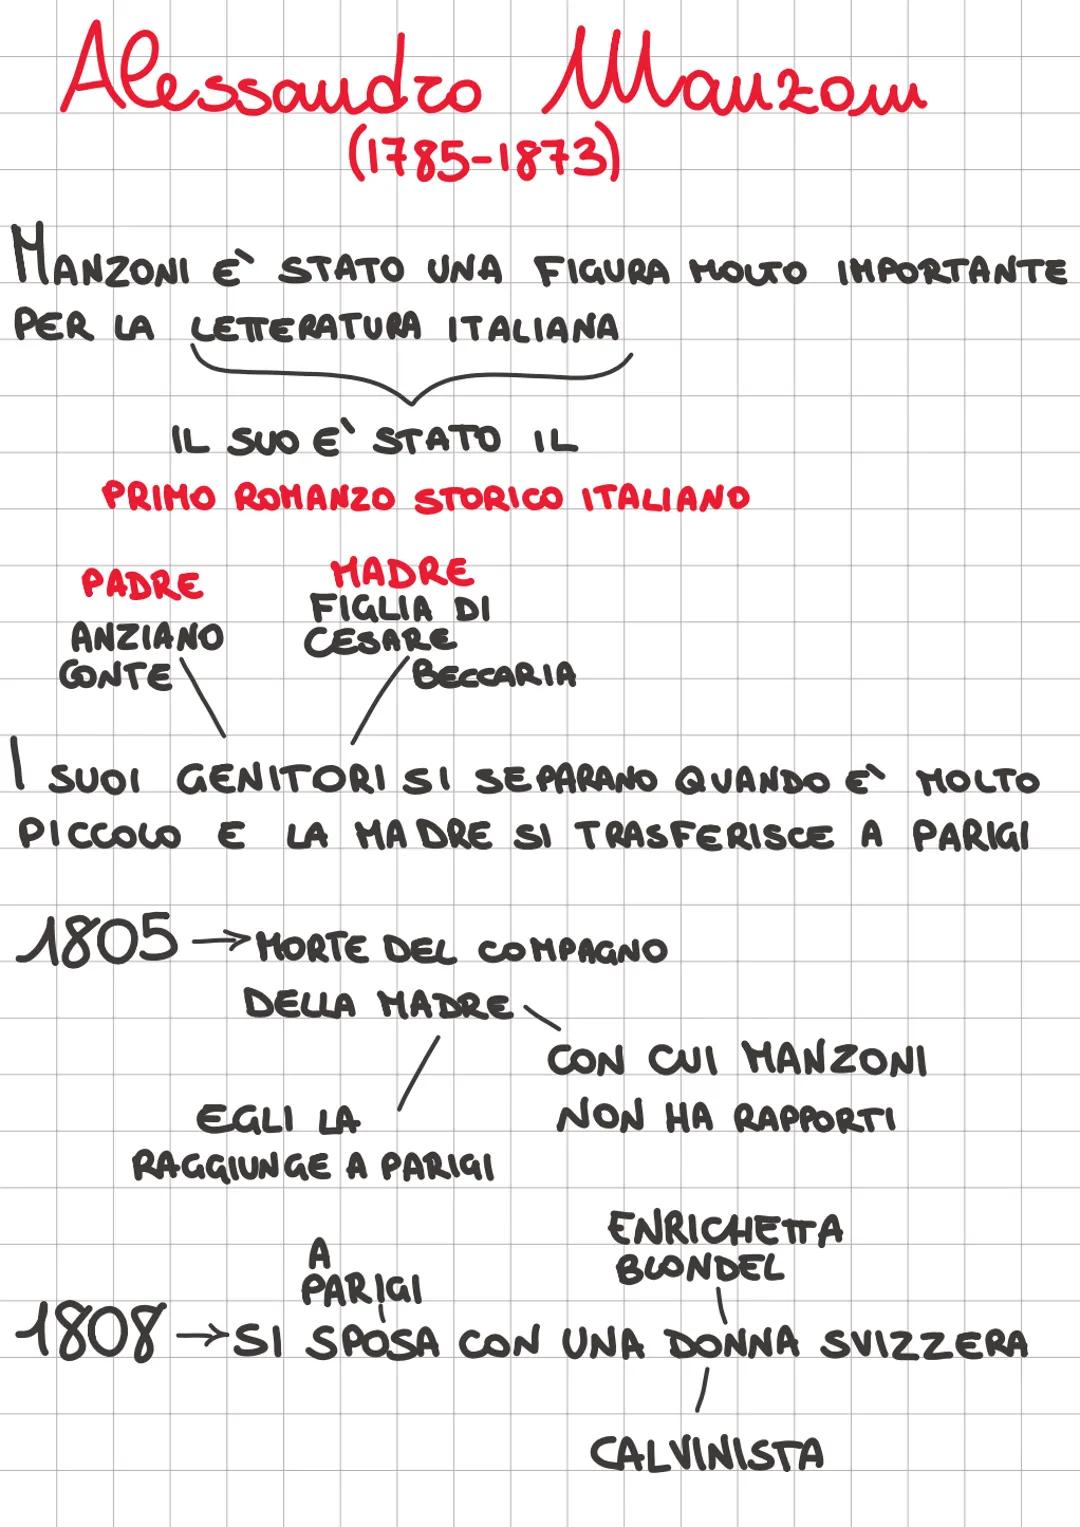 Alessandro Manzoni
(1785-1873)
MANZONI E` STATO UNA FIGURA MOLTO IMPORTANTE
PER LA LETTERATURA ITALIANA
IL SUO E` STATO IL
PRIMO ROMANZO STORICO ITALIANO
PADRE
ANZIANO
CONTE
MADRE
FIGLIA DI
CESARE
BECCARIA
I SUOI GENITORI SI SEPARANO QUANDO E` MOLTO
PICCOLO E LA MADRE SI TRASFERISCE A PARIGI
1805 → MORTE DEL COMPAGNO
DELLA MADRE
CON CUI MANZONI
NON HA RAPPORTI
EGLI LA
RAGGIUNGE A PARIGI
A
PARIGI
ENRICHETTA
BLONDEL
1808 → SI SPOSA CON UNA DONNA SVIZZERA
CALVINISTA